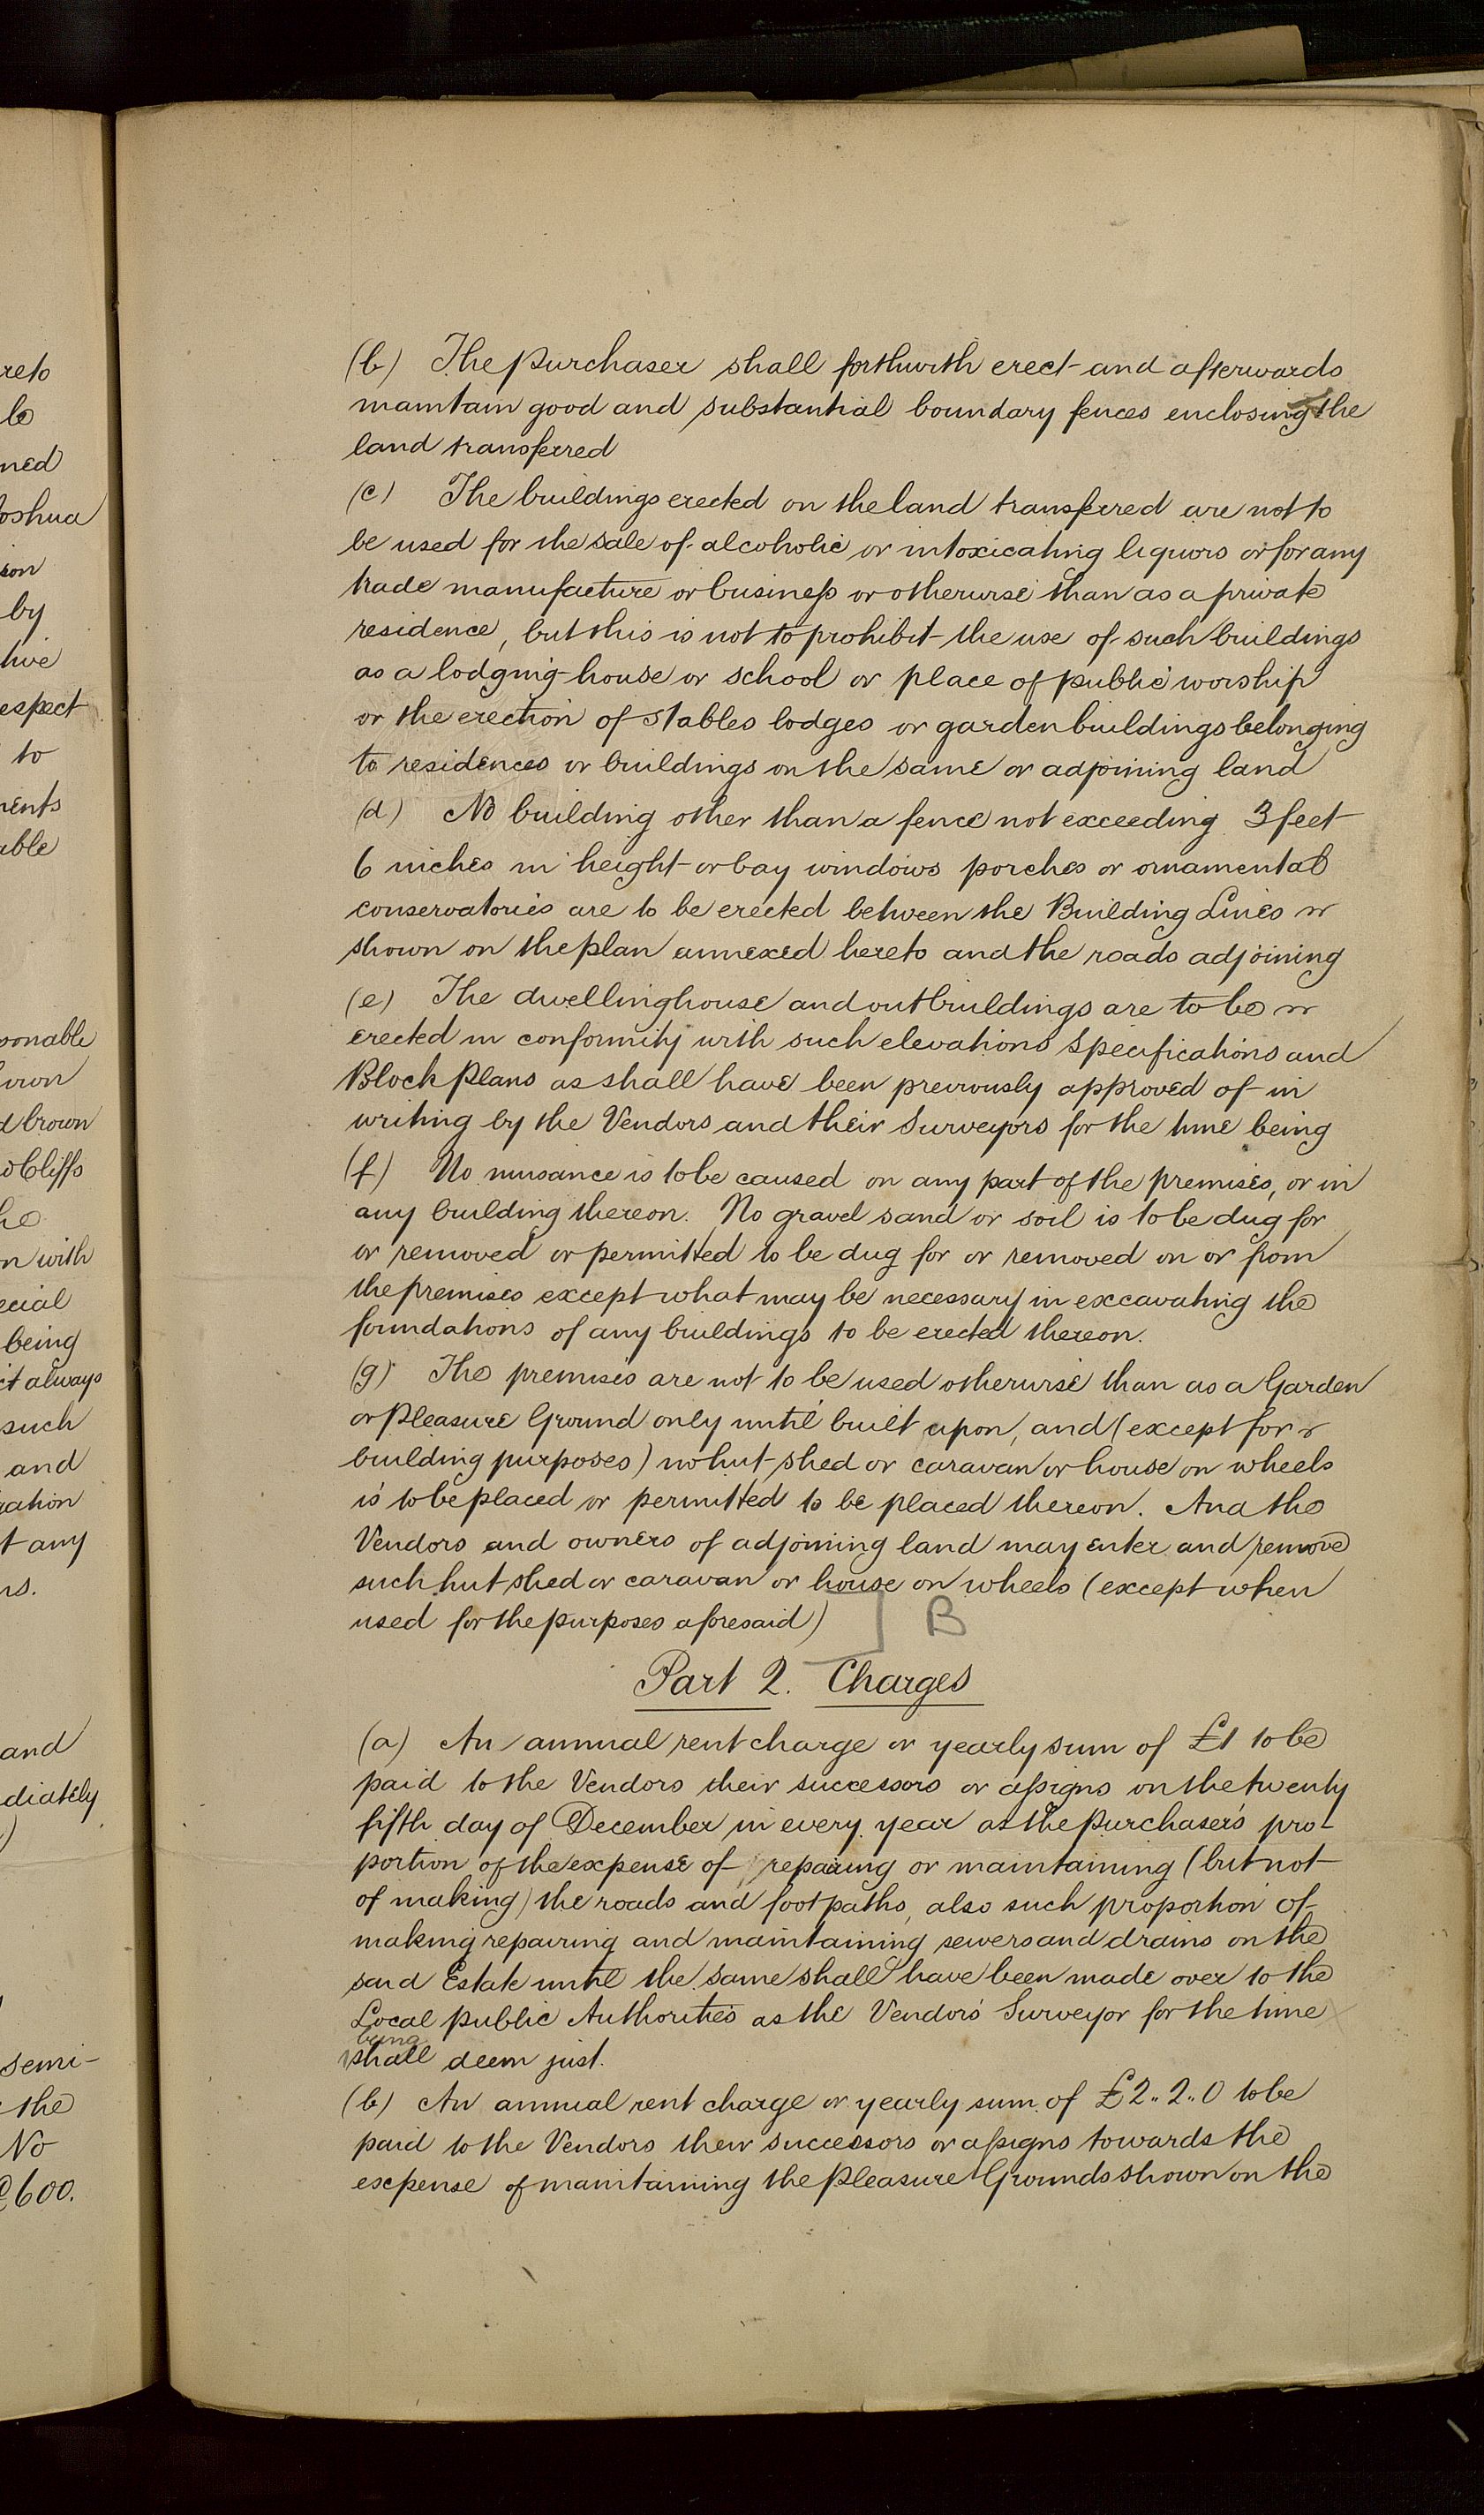 reto
be
ned
Joshua
ion
by
tive
respect
to
ments
able
sonable
brown
d brown
o Cliffs
he
n with
ecial
being
ct always
such
and
ration
t any
ns.
and
diately
)
semi-
the
No
£600.
(b) The purchaser shall forthwith erect and afterwards
maintain good and substantial boundary fences enclosing the
land transferred
(c) The buildings erected on the land transferred are not to
be used for the sale of alcoholic or intoxicating liquors or for any
trade manufacture or business or otherwise than as a private
residence, but this is not to prohibit the use of such buildings
as a lodging house or school or place of public worship
or the erection of stables lodges or garden buildings belonging
to residences or buildings on the same or adjoining land
(d) No building other than a fence not exceeding 3 feet
6 inches in height or bay windows porches or ornamental
conservatories are to be erected between the Building Lines
shown on the plan annexed hereto and the roads adjoining
(e) The dwellinghouse and outbuildings are to be
erected in conformity with such elevations Specifications and
Block Plans as shall have been previously approved of in
writing by the Vendors and their Surveyors for the time being
(f) No nuisance is to be caused on any part of the premises, or in
any building thereon. No gravel sand or soil is to be dug for
or removed or permitted to be dug for or removed on or from
the premises except what may be necessary in excavating the
foundations of any buildings to be erected thereon.
(g) The premises are not to be used otherwise than as a Garden
or Pleasure Ground only until built upon, and (except for
building purposes) no hut shed or caravan or house on wheels
is to be placed or permitted to be placed thereon. And the
Vendors and owners of adjoining land may enter and remove
such hut shed or caravan or house on wheels (except when
used for the purposes aforesaid) ] B
Part 2. Charges
(a) An annual rent charge or yearly sum of £1 to be
paid to the Vendors their successors or assigns on the twenty
fifth day of December in every year as the purchaser's pro-
portion of the expense of repairing or maintaining (but not
of making) the roads and footpaths, also such proportion of
making repairing and maintaining sewers and drains on the
said Estate until the same shall have been made over to the
Local public Authorities as the Vendors' Surveyor for the time
being
shall deem just.
(b) An annual rent charge or yearly sum of £2..2..0 to be
paid to the Vendors their successors or assigns towards the
expense of maintaining the Pleasure Grounds shown on the